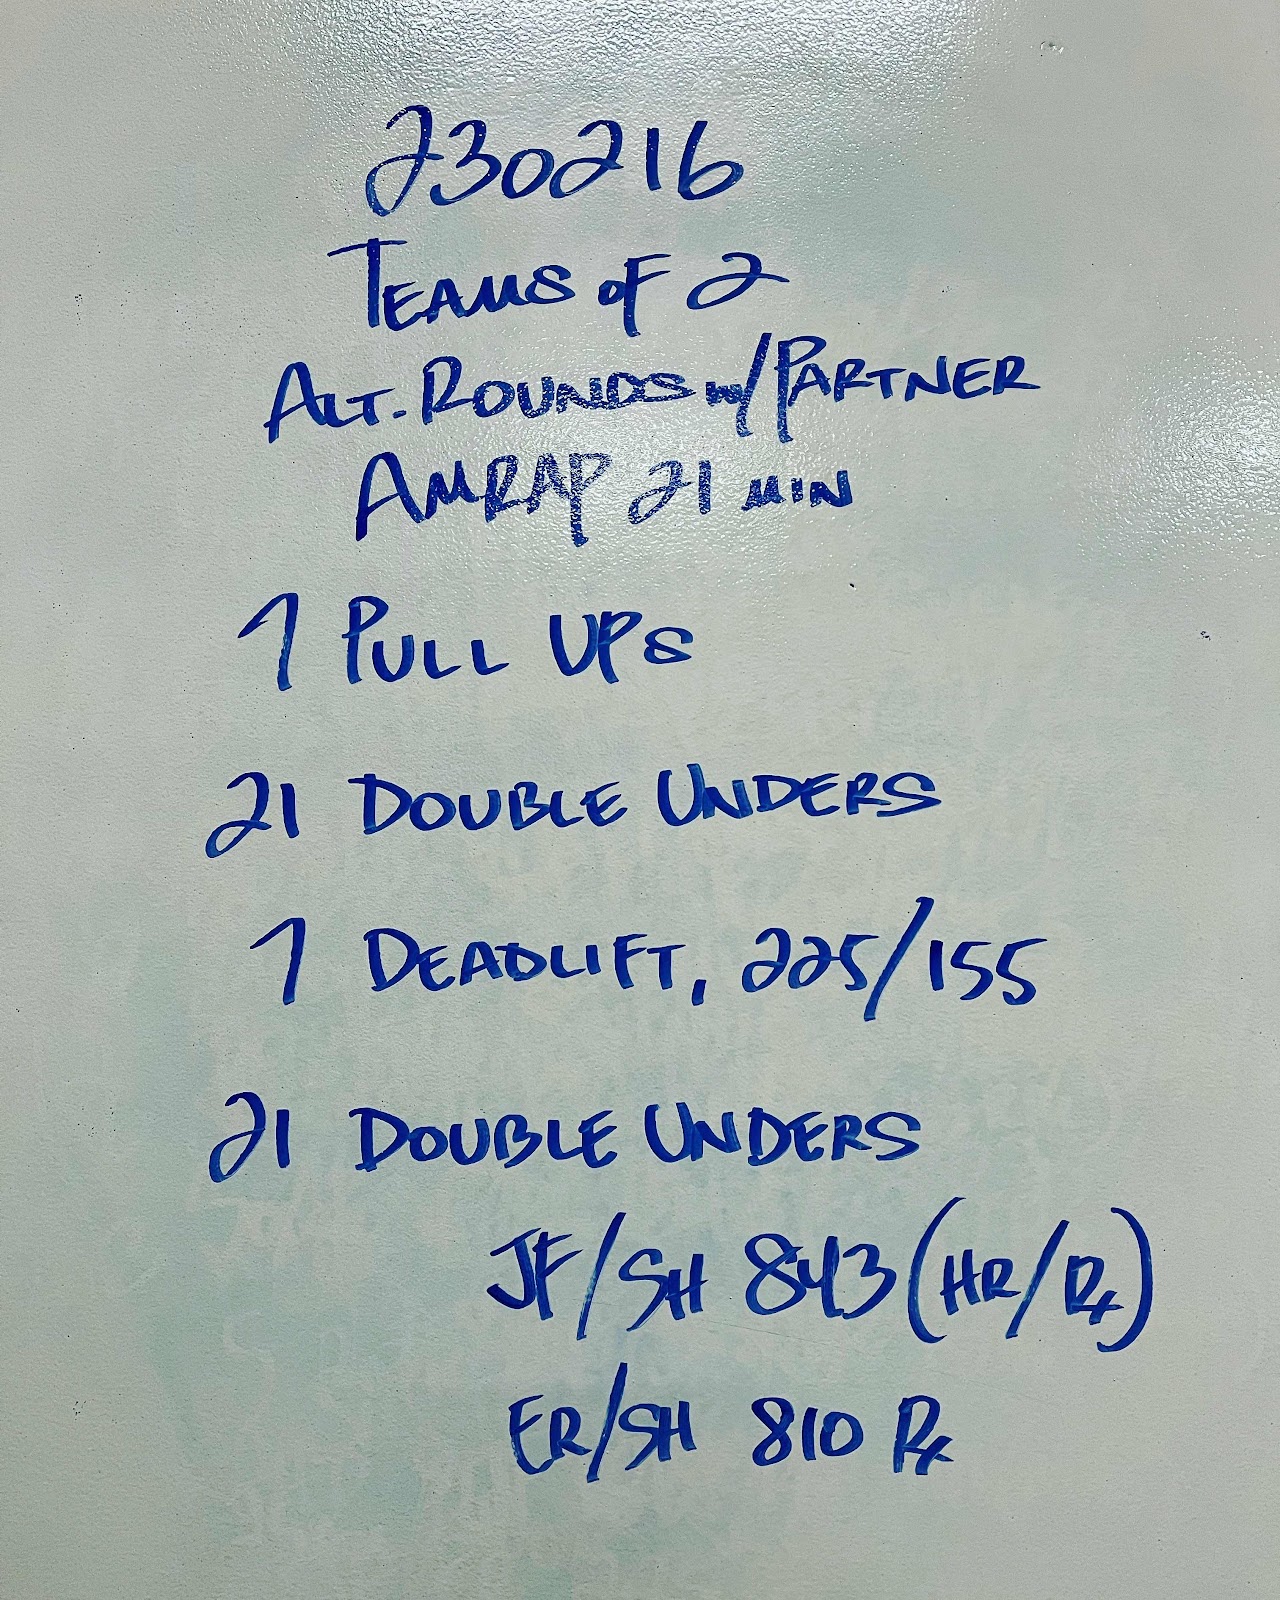 230216
TEAMS OF 2
ALT. ROUNDS W/PARTNER
AMRAP 21 MIN
7 PULL UPS
21 DOUBLE UNDERS
7 DEADLIFT, 225/155
21 DOUBLE UNDERS
JF/SH 843 (HR/Rx)
ER/SH 810 Rx